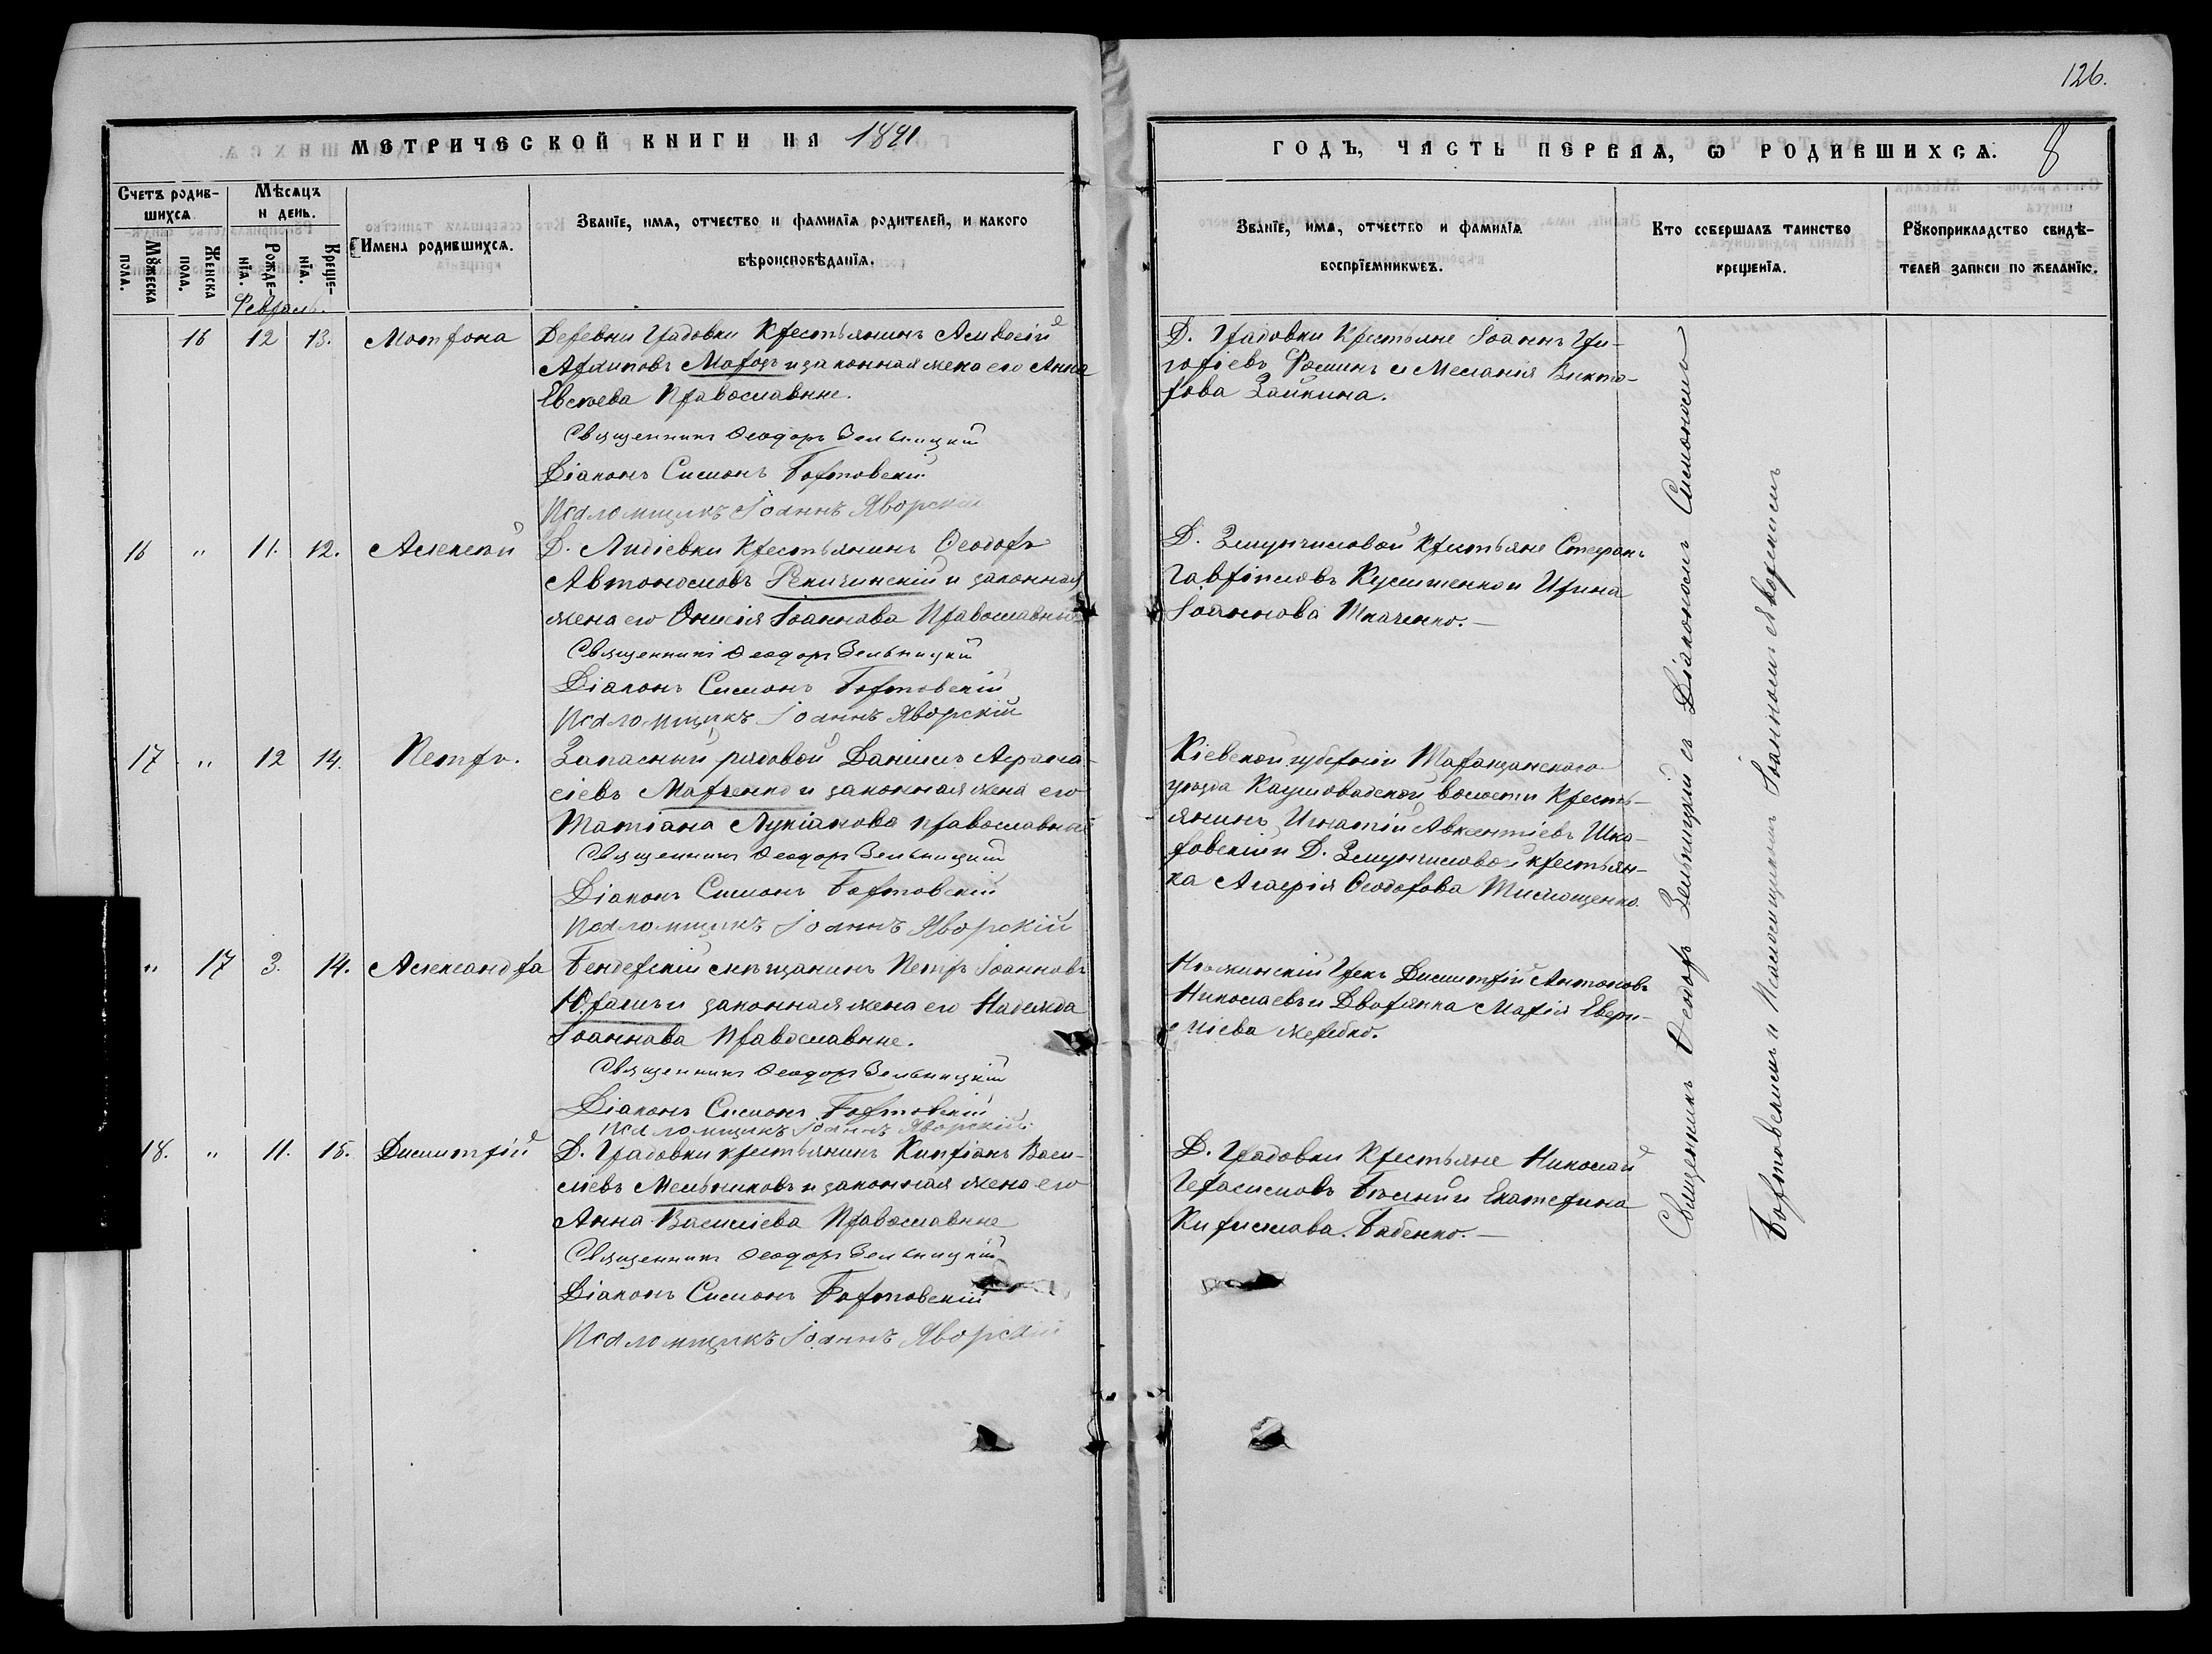 126.
МЕТРИЧЕСКОЙ КНИГИ НА 1891
ГОДЪ, ЧАСТЬ ПЕРВАЯ, Ѡ РОДИВШИХСѦ. 8
Счетъ родив-
шихсѧ
Мѣсѧцъ
и день.
Мꙋжеска пола.
Женска пола.
Рожде-
нїѧ.
Креще-
нїѧ.
Имена родившихсѧ.
Званїе, имѧ, отчество и фамилїѧ родителей, и какого
вѣроисповѣданїѧ.
Званїе, имѧ, отчество и фамилїѧ
воспрїемникѡвъ.
Кто совершалъ таинство
крещенїѧ.
Рꙋкоприкладство свидѣ-
телей записи по желанїю.
Февраль.
16 12 13. Мотрона
Деревни Градовки Крестьянинъ Алексій
Архиповъ Мафодъ и законная жена его Анна
Евсѣева Православные.
Священникъ Ѳеодоръ Зельницкій
Діаконъ Симонъ Бортовскій
Псаломщикъ Іоаннъ Яворскій
Д. Градовки Крестьяне Іоаннъ Гри-
горіевъ и Меланія Викто-
рова Зайкина.
16 " 11. 12. Алексѣй
Д. Лидіевки Крестьянинъ Ѳеодоръ
Автономовъ Речичинскій и законная
жена его Іоаннова Православные
Священникъ Ѳеодоръ Зельницкій
Діаконъ Симонъ Бортовскій
Псаломщикъ Іоаннъ Яворскій
Д. Змунчиловой Крестьяне Стефанъ
Гавріиловъ Кушменко и Ирина
Іоаннова Ткаченко.—
17 " 12 14. Петръ.
Запасный рядовой Даніилъ Аѳана-
сіевъ Марченко и законная жена его
Татіана Лукіанова православные
Священникъ Ѳеодоръ Зельницкій
Діаконъ Симонъ Бортовскій
Псаломщикъ Іоаннъ Яворскій
Кіевской губерніи Таращанскаго
уѣзда Кашоватской волости Кресть-
янинъ Игнатій Авксентіевъ Шка-
ровскій и Д. Змунчиловой крестьян-
ка Агафія Ѳеодорова Тимощенко
" 17 3. 14. Александра
Бендерскій мѣщанинъ Петръ Іоанновъ
Юрашъ и законная жена его Надежда
Іоаннова Православные.
Священникъ Ѳеодоръ Зельницкій
Діаконъ Симонъ Бортовскій
Псаломщикъ Іоаннъ Яворскій
Нѣжинскій Грекъ Димитрій Антоновъ
Николаевъ и Дворянка Марія Евгра-
Жеребко.
18. " 11. 15. Димитрій
Д. Градовки крестьянинъ Кипріанъ Васи-
ліевъ Мельниковъ и законная жена его
Анна Василіева Православные
Священникъ Ѳеодоръ Зельницкій
Діаконъ Симонъ Бортовскій
Псаломщикъ Іоаннъ Яворскій
Д. Градовки Крестьяне Николай
Герасимовъ Бѣлый и Екатерина
Кириллова Бабенко.—
Священникъ Ѳеодоръ Зельницкій съ Діакономъ Симономъ
Бортовскимъ и Псаломщикомъ Іоанномъ Яворскимъ